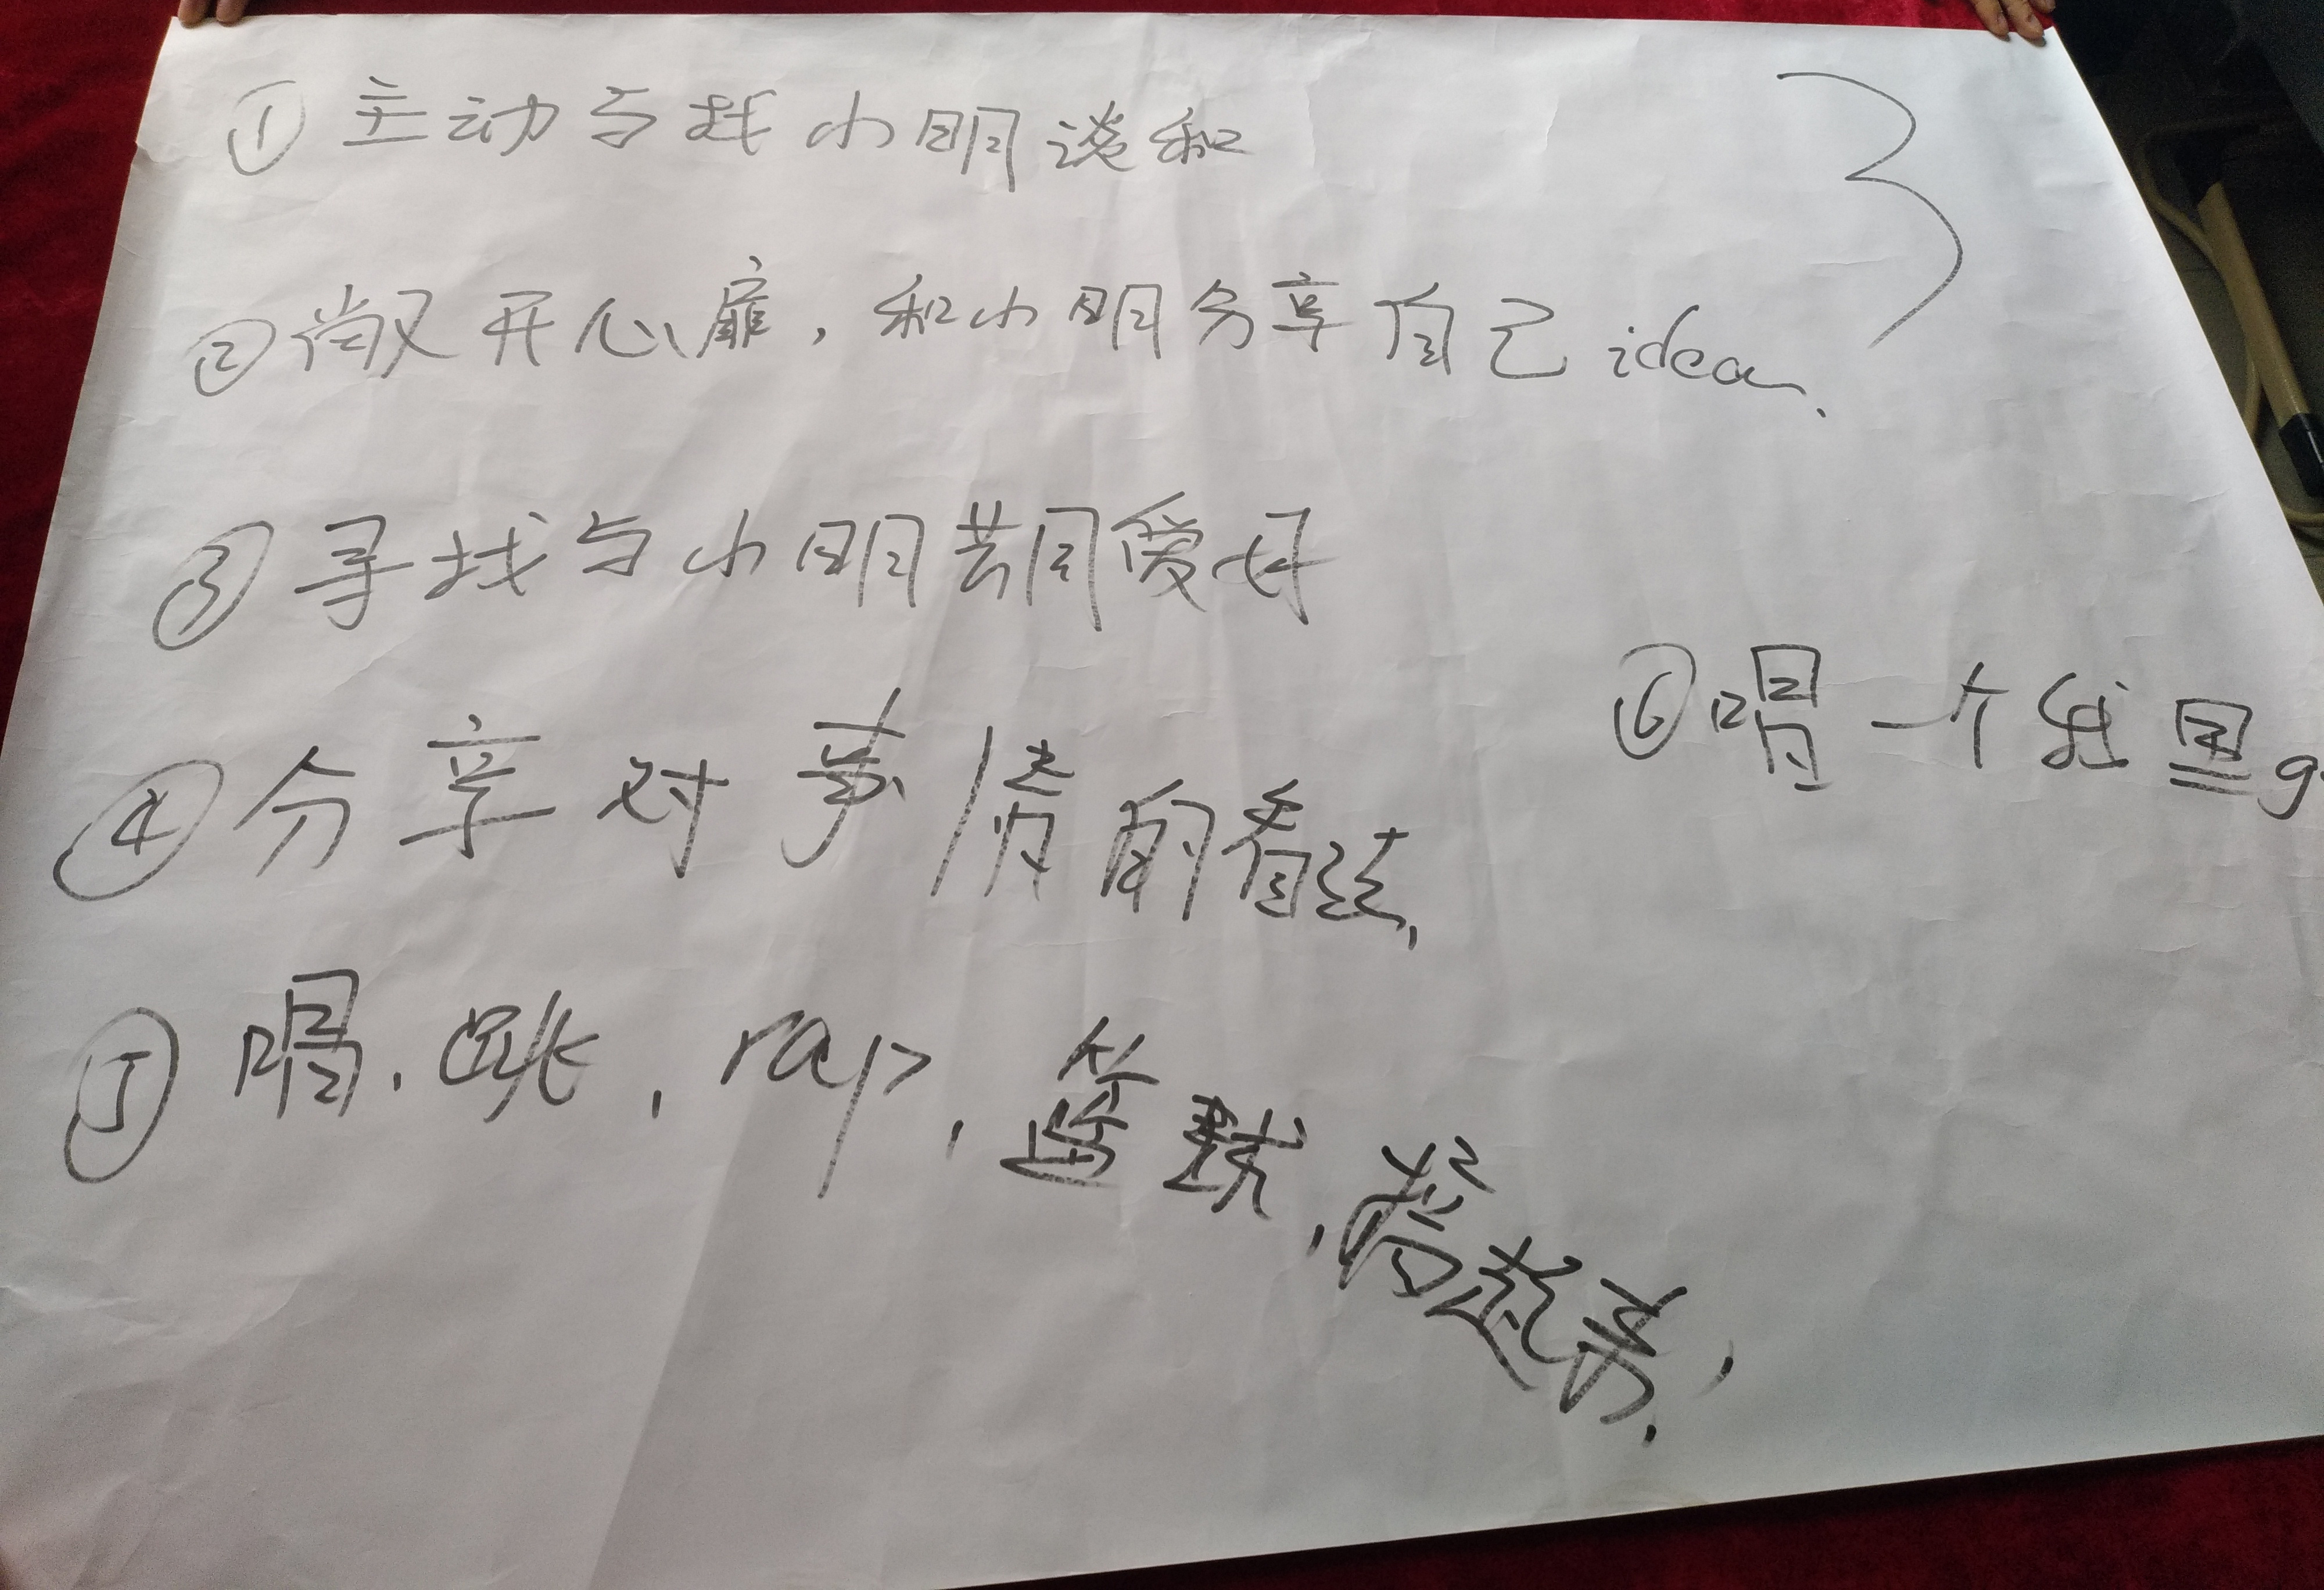 3
① 主动与找小明谈和
② 敞开心扉，和小明分享自己idea.
③ 寻找与小明共同爱好
④ 分享对事情的看法,
⑥ 喝一个
⑤ 唱.跳,rap,篮球,